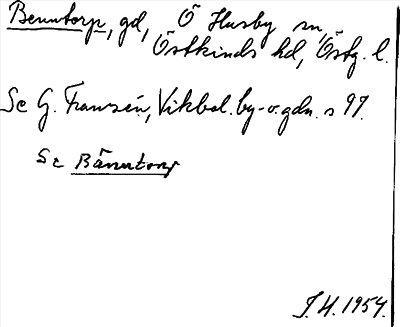 Benntorp, gd, Ö Husby sn,
Östkinds hd, Östg. l.
Se G. Franzén, Vikbol. by- o. gdn. s 97.
Se Bänntorp
J.H. 1954.